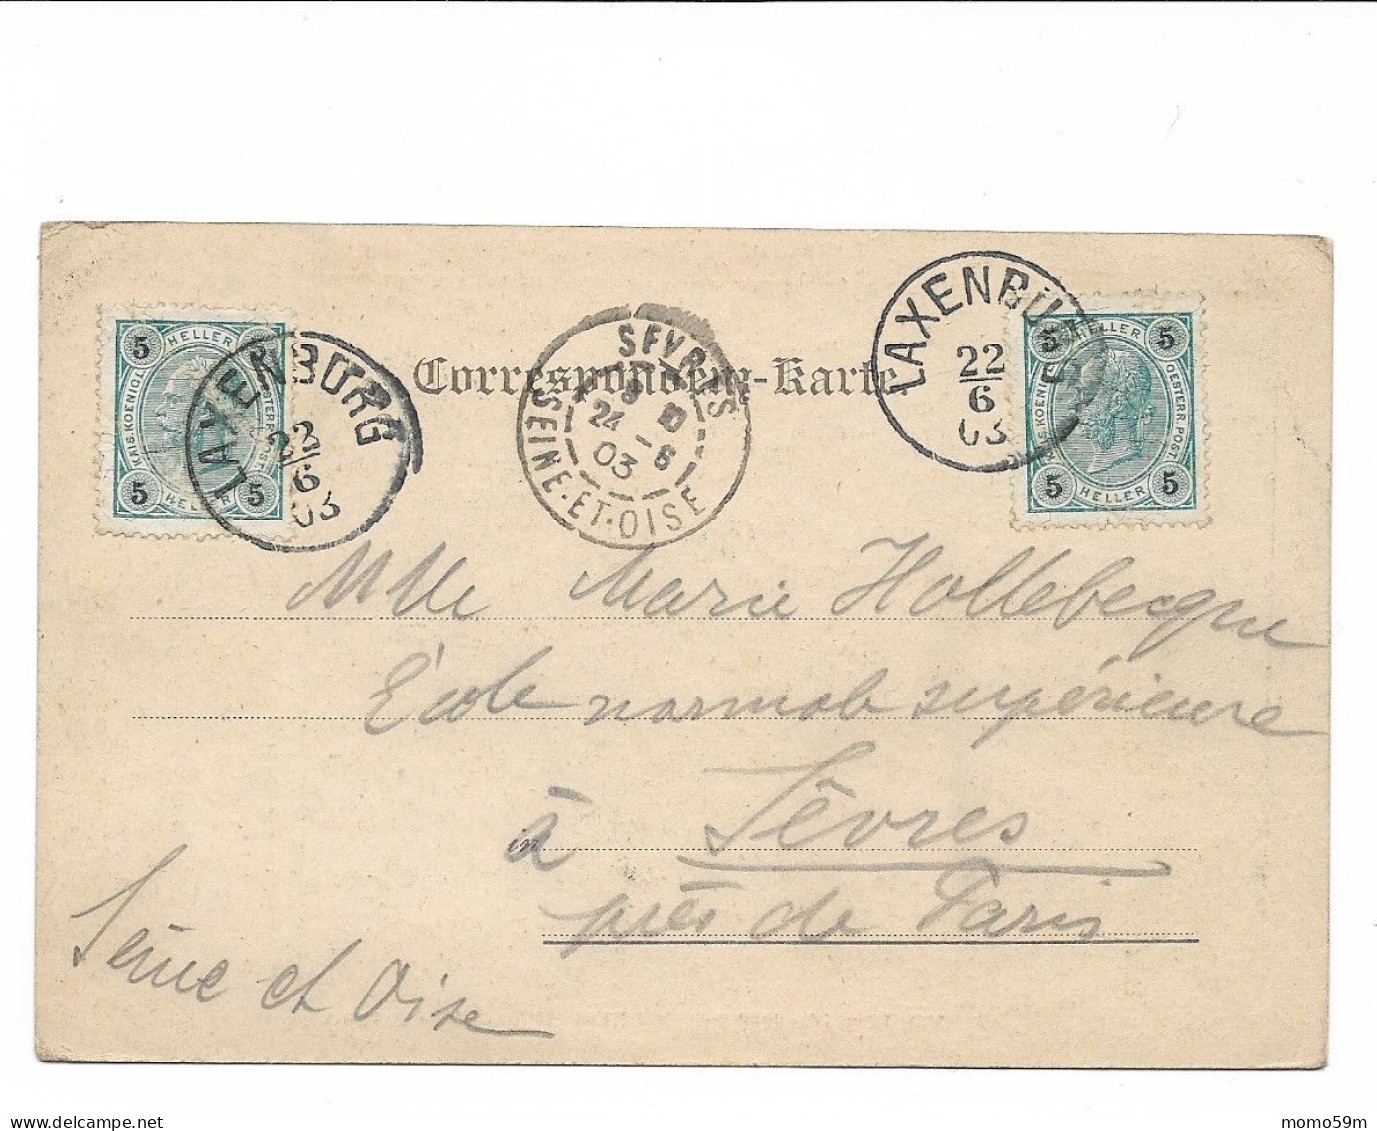 5 HELLER 5
KAIS. KOENIGL. OESTERR. POST
5 HELLER 5
LAXENBURG
22
6
03
Correspondenz-Karte
SEVRES
24 - 6
03
SEINE-ET-OISE
LAXENBURG
22
6
03
5 HELLER 5
KAIS. KOENIGL. OESTERR. POST
5 HELLER 5
Mlle Marie Hollebecque
École normale supérieure
à Sèvres
près de Paris
Seine et Oise
www.delcampe.net
momo59m